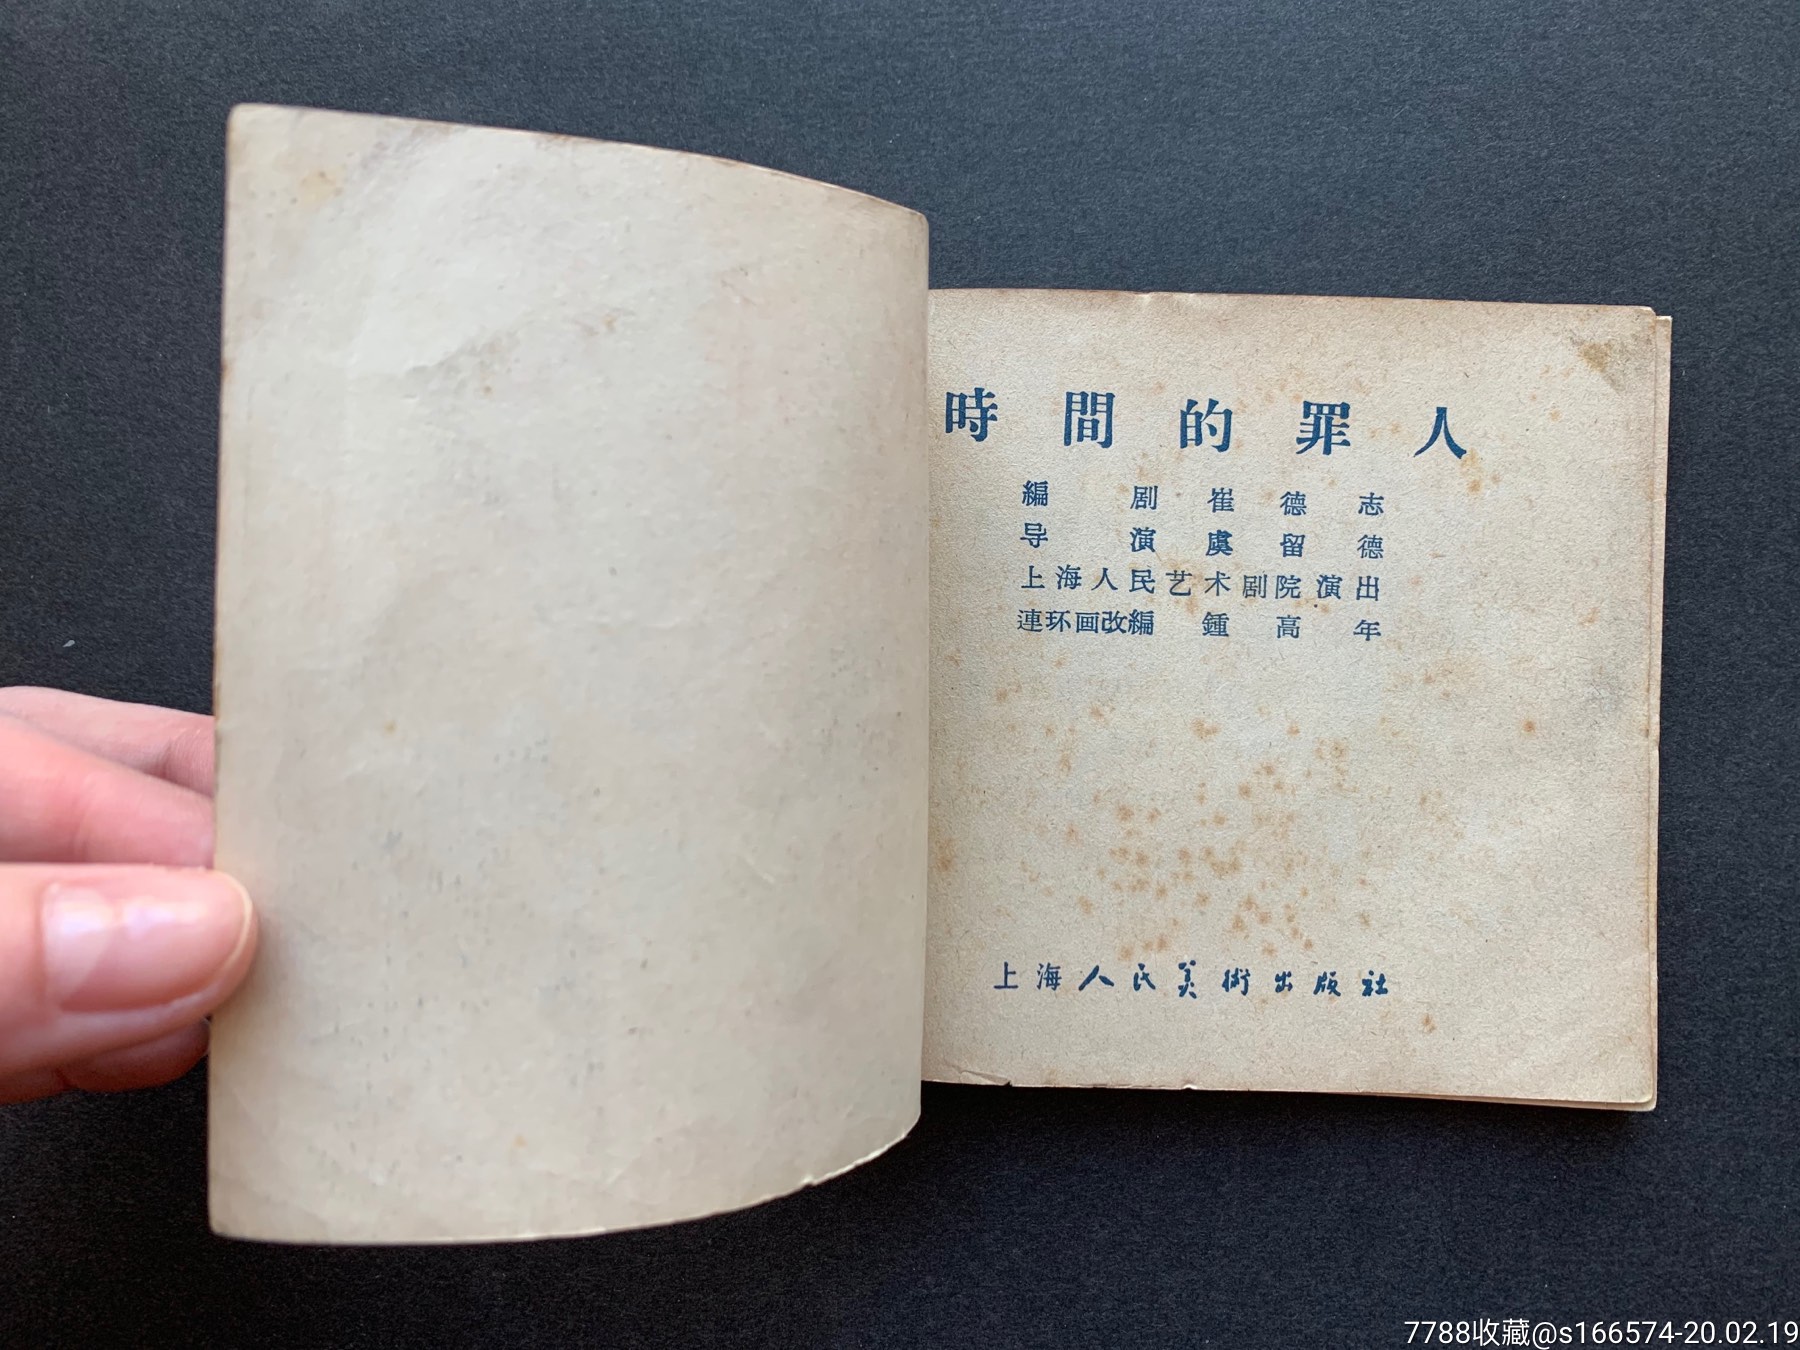 時間的罪人
編剧崔德志
导演虞留德
上海人民艺术剧院演出
連环画改編 鍾高年
上海人民美術出版社
7788收藏@s166574-20.02.19